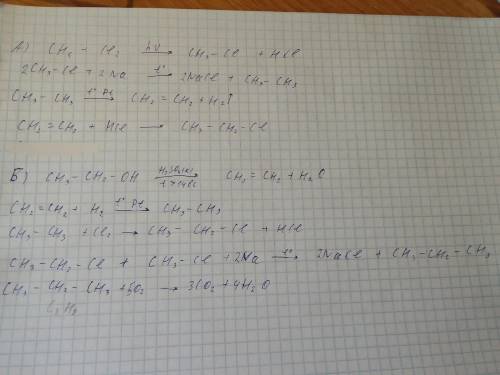 А) CH4 - Cl2 hν→ CH3-Cl + HCl
2CH3-Cl + 2Na t°→ 2NaCl + CH3-CH3
CH3-CH3 t° Pt→ CH2=CH2 + H2↑
CH2=CH2 + HCl → CH3-CH2-Cl
Б) CH3-CH2-OH H2SO4(к), t>140c→ CH2=CH2 + H2O
CH2=CH2 + H2 t° Pt→ CH3-CH3
CH3-CH3 + Cl2 → CH3-CH2-Cl + HCl
CH3-CH2-Cl + CH3-Cl + 2Na t°→ 2NaCl + CH3-CH2-CH3
CH3-CH2-CH3 + 5O2 → 3CO2 + 4H2O
C3H8